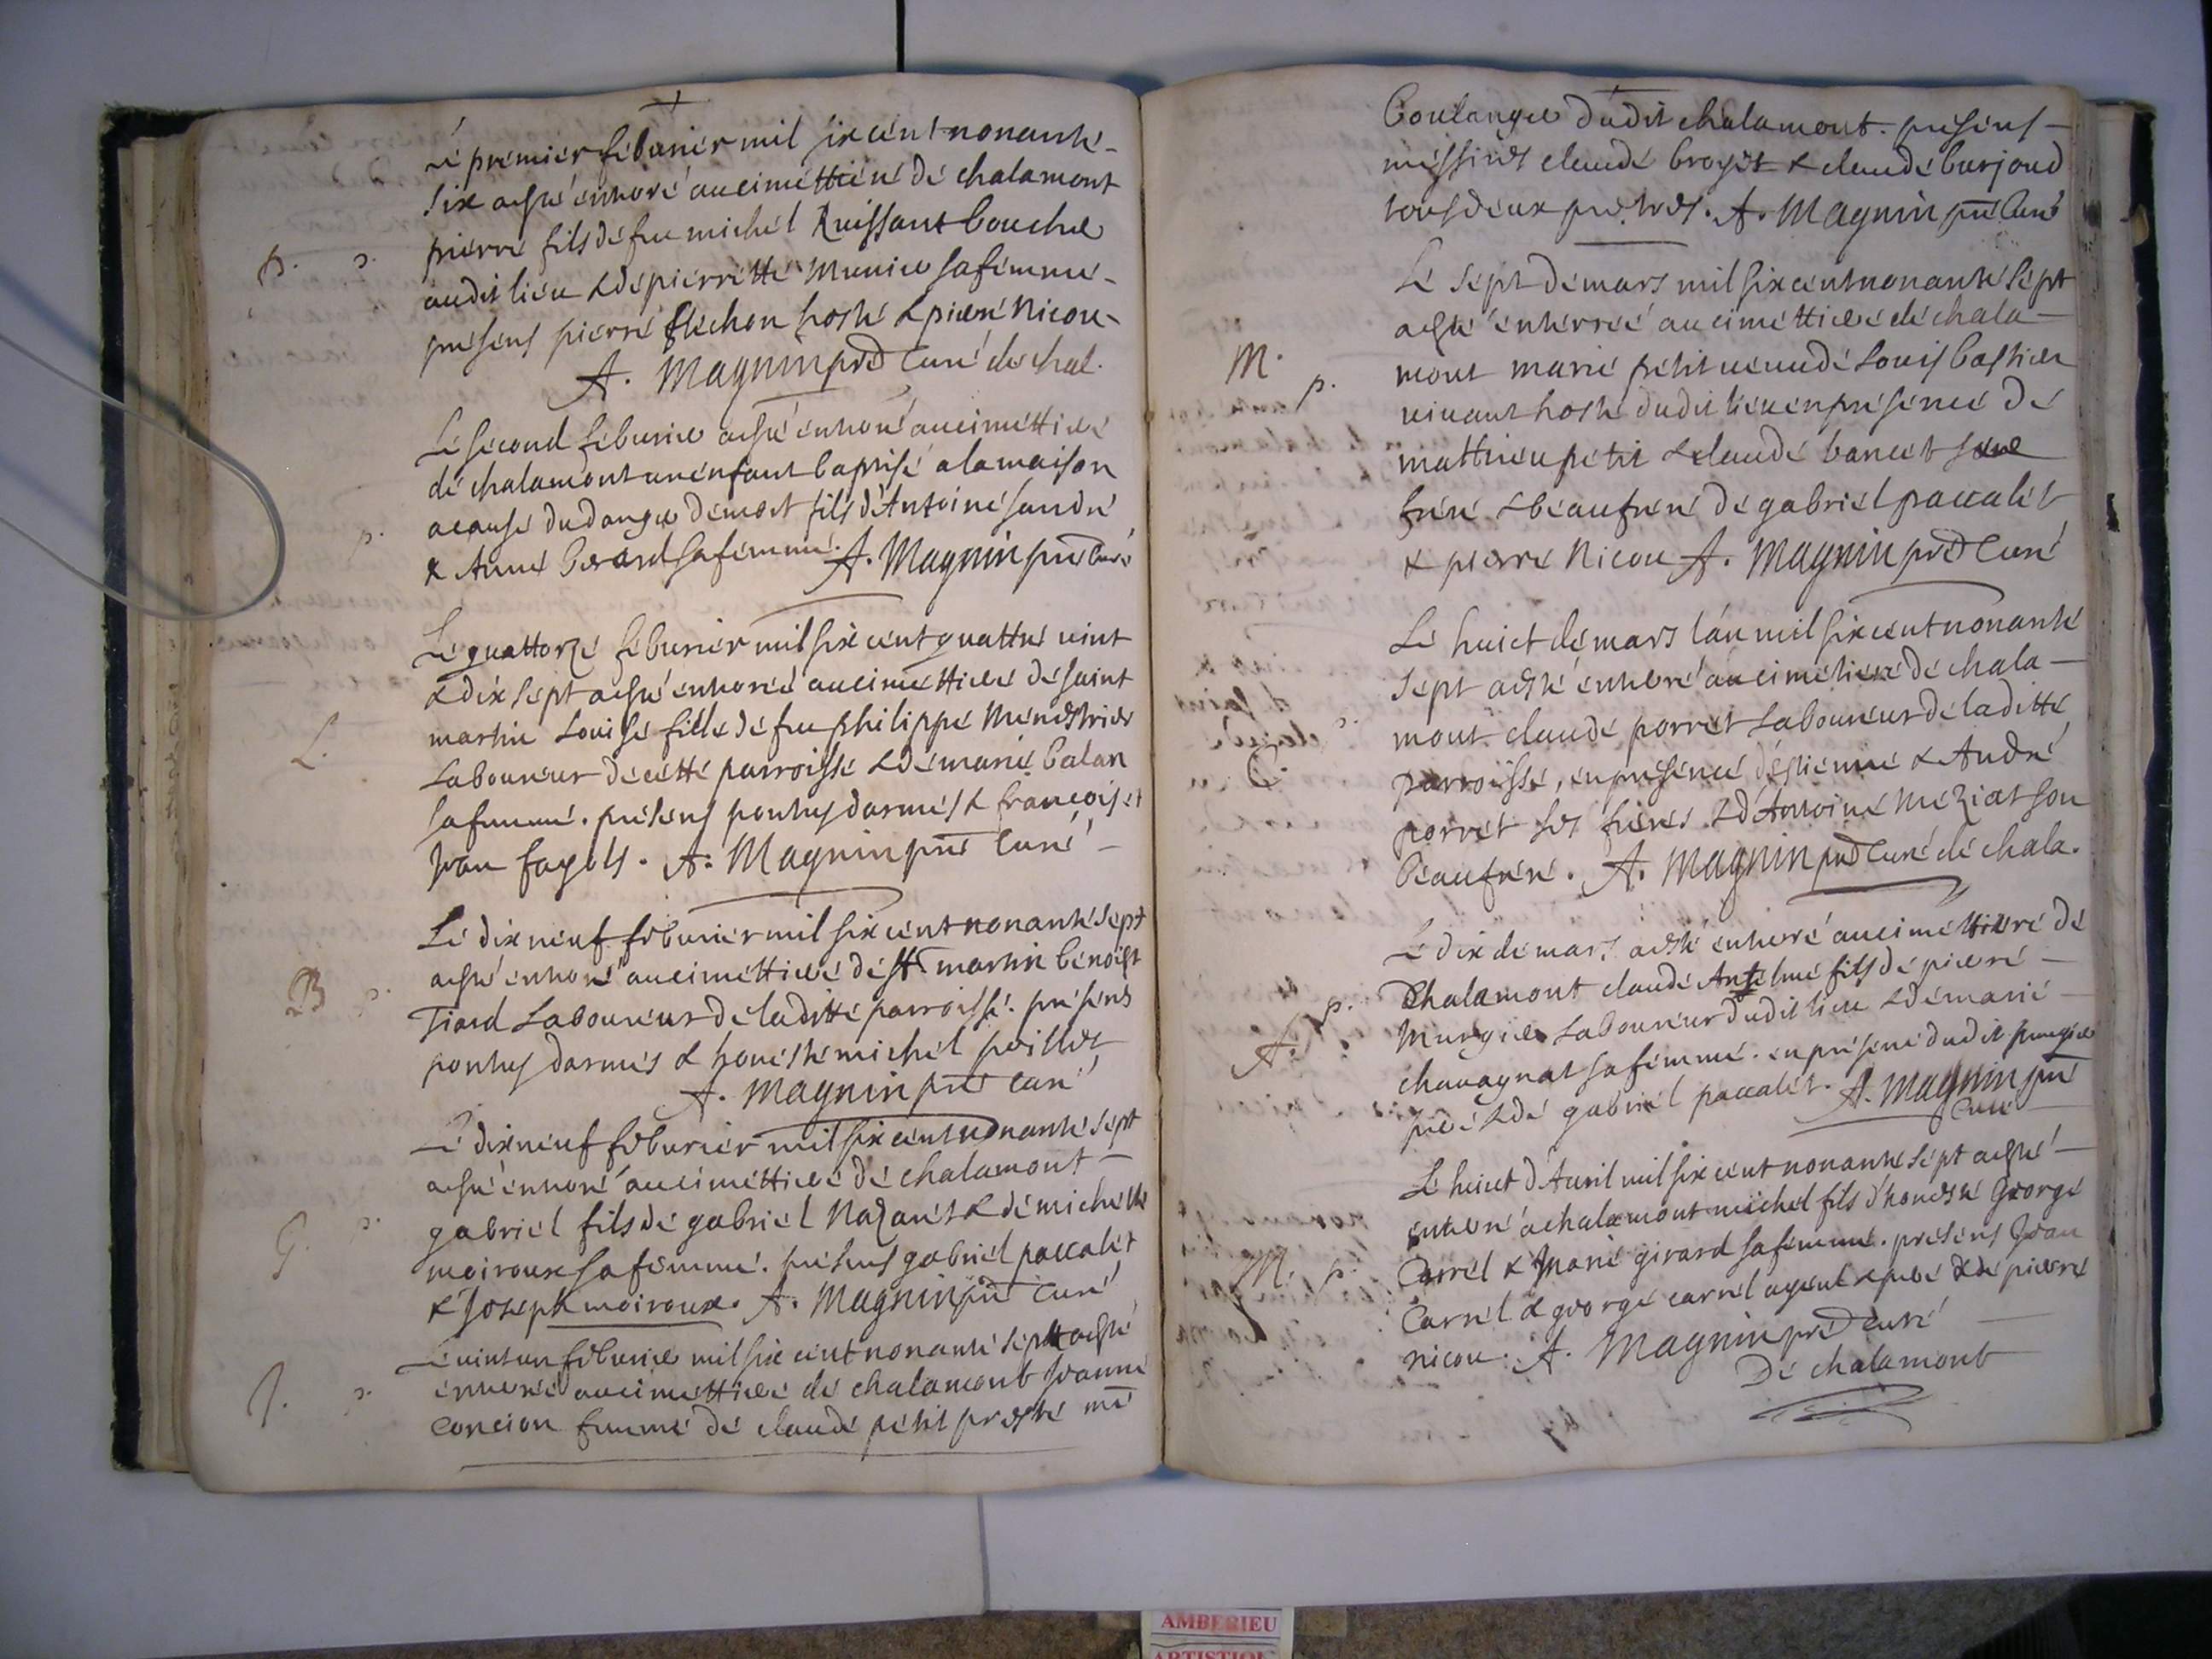 Le premier feburier mil six cent nonante
six a esté enterré au cimettiere de chalamont
p. pierre fils de feu michel Ruissant boucher
audit lieu & de pierrette Munier sa femme
presens pierre flechon hoste & pierre Nicou
A. Magnin pre Curé de chal.
Le second feburier a esté enterré au cimettiere
de chalamont un enfant baptisé a la maison
a cause du danger de mort fils d'Antoine sandre
p. & Anne berard sa femme. A. Magnin pre Curé
Le quattorze feburier mil six cent quattre vint
& dix sept a esté enterrée au cimettiere de saint
martin Louise fille de feu philippe Menestrier
L. Laboureur de cette parroisse & de marie balan
sa femme. presens ponthus darmes & francois et
Jean fagots. A. Magnin pre Curé
Le dix neuf feburier mil six cent nonante sept
B a esté enterré au cimettiere de st martin benoist
Tiard Laboureur de laditte parroisse. presens
ponthus darmes & honeste michel peillet
A. Magnin pre Curé
Le dix neuf feburier mil six cent nonante sept
a esté enterré au cimettiere de chalamont
G. gabriel fils de gabriel Nazaret & de michelle
moiroux sa femme. presens gabriel paccalet
& Joseph moiroux. A. Magnin pre Curé
Le vint un feburier mil six cent nonante sept a esté
J. enterrée au cimettiere de chalamont Jeanne
concion femme de claude petit preste me
boulanger dudit chalamont. presens
messires claude broyet & claude burjoud
tous deux prestres. A. Magnin pre Curé
Le sept de mars mil six cent nonante sept
a esté enterrée au cimettiere de chala
M. mont marie petit veuve de Louis bastier
p. vivant hoste dudit lieu en presence de
matthieu petit & claude bancet
frere & beaufrere de gabriel paccalet
& pierre Nicou A. Magnin pre Curé
Le huict de mars l'an mil six cent nonante
sept a esté enterré au cimetiere de chala
C mont claude porret Laboureur de laditte
parroisse, en presence d'estienne & André
porret ses freres & d'Antoine Meziat son
beaufrere. A. Magnin pre Curé de chala.
Le dix de mars a esté enterré au cimettiere de
p. Chalamont claude Anthelme fils de pierre
A. Murgier Laboureur dudit lieu & de marie
chavagnat sa femme. en presence dudit
pere & de gabriel paccalet. A. Magnin pre
Curé
Le huict d'Avril mil six cent nonante sept a esté
enterré a chalamont michel fils d'honeste George
M. p. Carrel & Marie girard sa femme. presens Jean
Carrel & george carrel ayeul & pere & de pierre
nicou. A. Magnin pre Curé
De chalamont
AMBERIEU